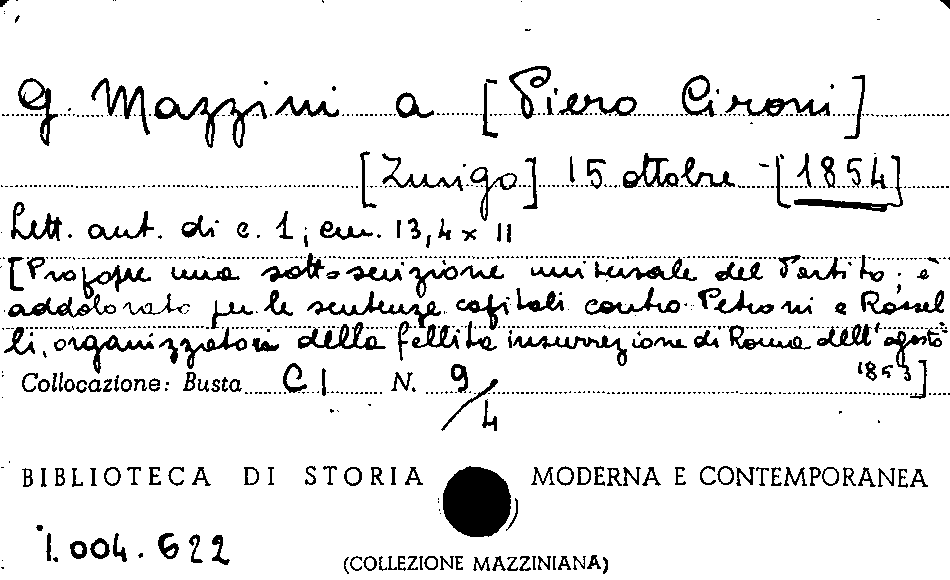 G. Mazzini a [Piero Cironi]
[Zurigo] 15 ottobre - [1854]
Lett. aut. di c. 1, cm. 13,4 x 11
[Propone una sottoscrizione universale del Partito; è
addolorato per le sentenze capitali contro Petroni e Rossel
li, organizzatori della fallita insurrezione di Roma dell'agosto
1853]
Collocazione: Busta C 1 N. 9/4
BIBLIOTECA DI STORIA MODERNA E CONTEMPORANEA
1.004.622
(COLLEZIONE MAZZINIANA)